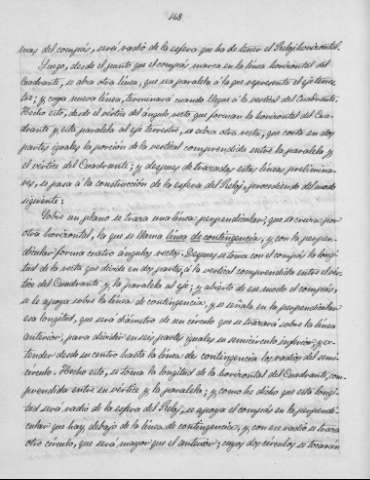 148
nas del compás, será radio de la esfera que ha de tener el Reloj horizontal.
Luego, desde el punto que el compás marca en la línea horizontal del
Cuadrante, se abra otra línea, que sea paralela á la que represente el eje terres-
tre; y cuya nueva línea, terminará cuando llegue á la vertical del Cuadrante.
Hecho esto, desde el vértice del ángulo recto que forman la horizontal del Cua-
drante y esta paralela al eje terrestre, se abra otra recta, que corte en dos
partes iguales la porción de la vertical comprendida entre la paralela y
el vértice del Cuadrante; y despues de trazadas estas líneas prelimina-
res, se pasa á la construcción de la esfera del Reloj, procediendo del modo
siguiente:
Sobre un plano se traza una línea perpendicular; que se cruza por
otra horizontal, la que se llama línea de contingencia, y con la perpen-
dicular forma cuatro ángulos rectos. Despues se toma con el compás la longi-
tud de la recta que divide en dos partes á la vertical comprendida entre el vér-
tice del Cuadrante y la paralela al eje; y abierto de ese modo el compás,
se le apoya sobre la línea de contingencia, y se señala en la perpendicular
esa longitud, que será diámetro de un círculo que se trazará sobre la línea
anterior; para dividir en seis partes iguales su semicírculo inferior, y ex-
tender desde su centro hasta la línea de contingencia los radios del semi-
círculo. Hecho esto, se toma la longitud de la horizontal del Cuadrante, com-
prendida entre su vértice y la paralela; y como he dicho que esta longi-
tud será radio de la esfera del Reloj, se apoya el compás en la perpendi-
cular que hay debajo de la línea de contingencia, y con ese radio se traza
otro círculo, que será mayor que el anterior; cuyos dos círculos se tocarán